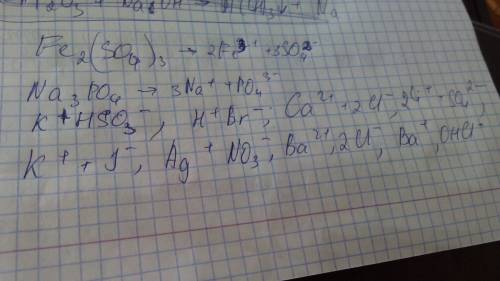 Fe₂(SO₄)₃ → 2Fe³⁺ + 3SO₄²⁻
Na₃PO₄ → 3Na⁺ + PO₄³⁻
K⁺ HSO₃⁻, H⁺ Br⁻, Ca²⁺ + 2Cl⁻, + SO₄²⁻,
K⁺ + J⁻, Ag⁺ NO₃⁻, Ba²⁺, 2Cl⁻, Ba⁺,